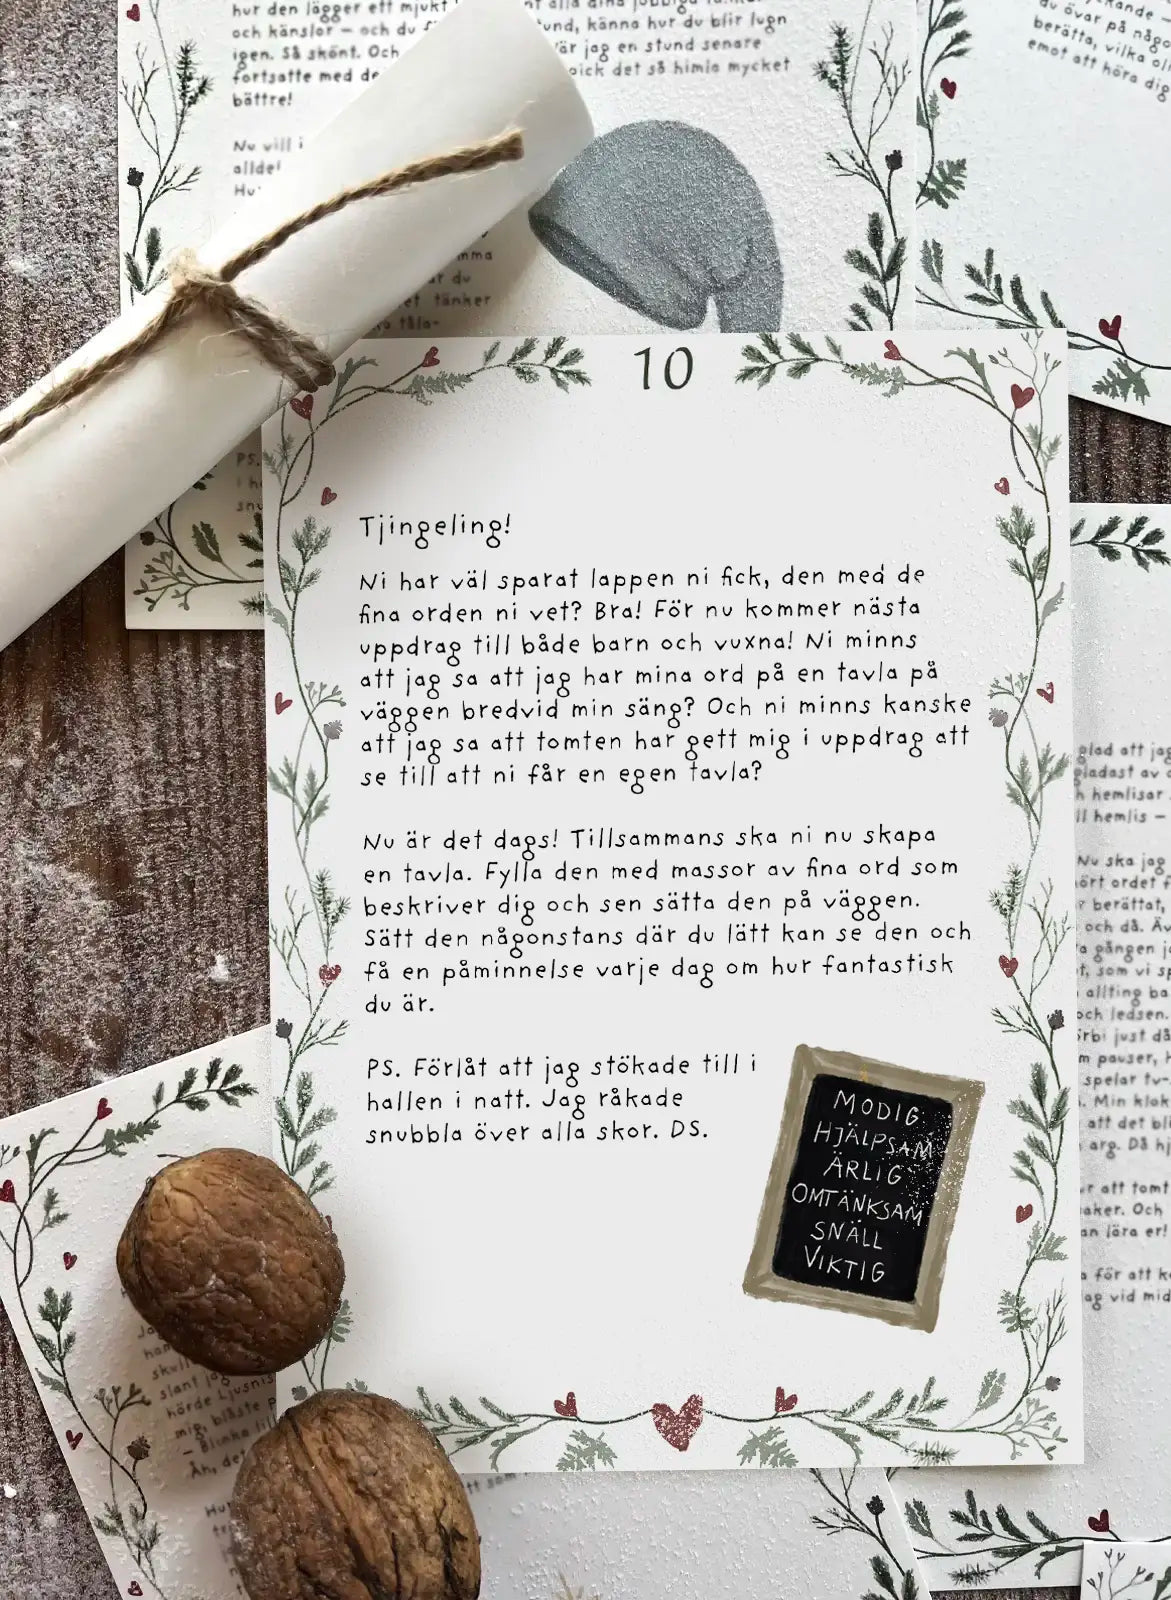 hur den lägger ett mjukt
och känslor – och du
igen. Så skönt. Och
fortsatte med de
bättre!
Nu vill i
alldel
Hu
alla dina jobbiga
und, känna hur du blir lugn
är jag en stund senare
gick det så himla mycket
mma
du
et tänker
tåla-
PS.
i h
snu
du övar på någo
berätta, vilka oli
emot att höra dig
10
Tjingeling!
Ni har väl sparat lappen ni fick, den med de
fina orden ni vet? Bra! För nu kommer nästa
uppdrag till både barn och vuxna! Ni minns
att jag sa att jag har mina ord på en tavla på
väggen bredvid min säng? Och ni minns kanske
att jag sa att tomten har gett mig i uppdrag att
se till att ni får en egen tavla?
Nu är det dags! Tillsammans ska ni nu skapa
en tavla. Fylla den med massor av fina ord som
beskriver dig och sen sätta den på väggen.
Sätt den någonstans där du lätt kan se den och
få en påminnelse varje dag om hur fantastisk
du är.
PS. Förlåt att jag stökade till i
hallen i natt. Jag råkade
snubbla över alla skor. DS.
MODIG
HJÄLPSAM
ÄRLIG
OMTÄNKSAM
SNÄLL
VIKTIG
glad att jag
gladast av
h hemlisar
ll hemlis –
Nu ska jag
ört ordet f
berättat,
och då. Äv
a gången j
t, som vi sp
allting ba
och ledsen.
rbi just då
m pauser, h
spelar tv-
. Min klok
att det bli
arg. Då hj
r att tomt
aker. Och
an lära er!
a för att k
ag vid mid
Ja
ham
skull
slant jag
hörde Ljusnis
mig, blåste p
– Blinka til
Åh, det
Hur
tr
tt som